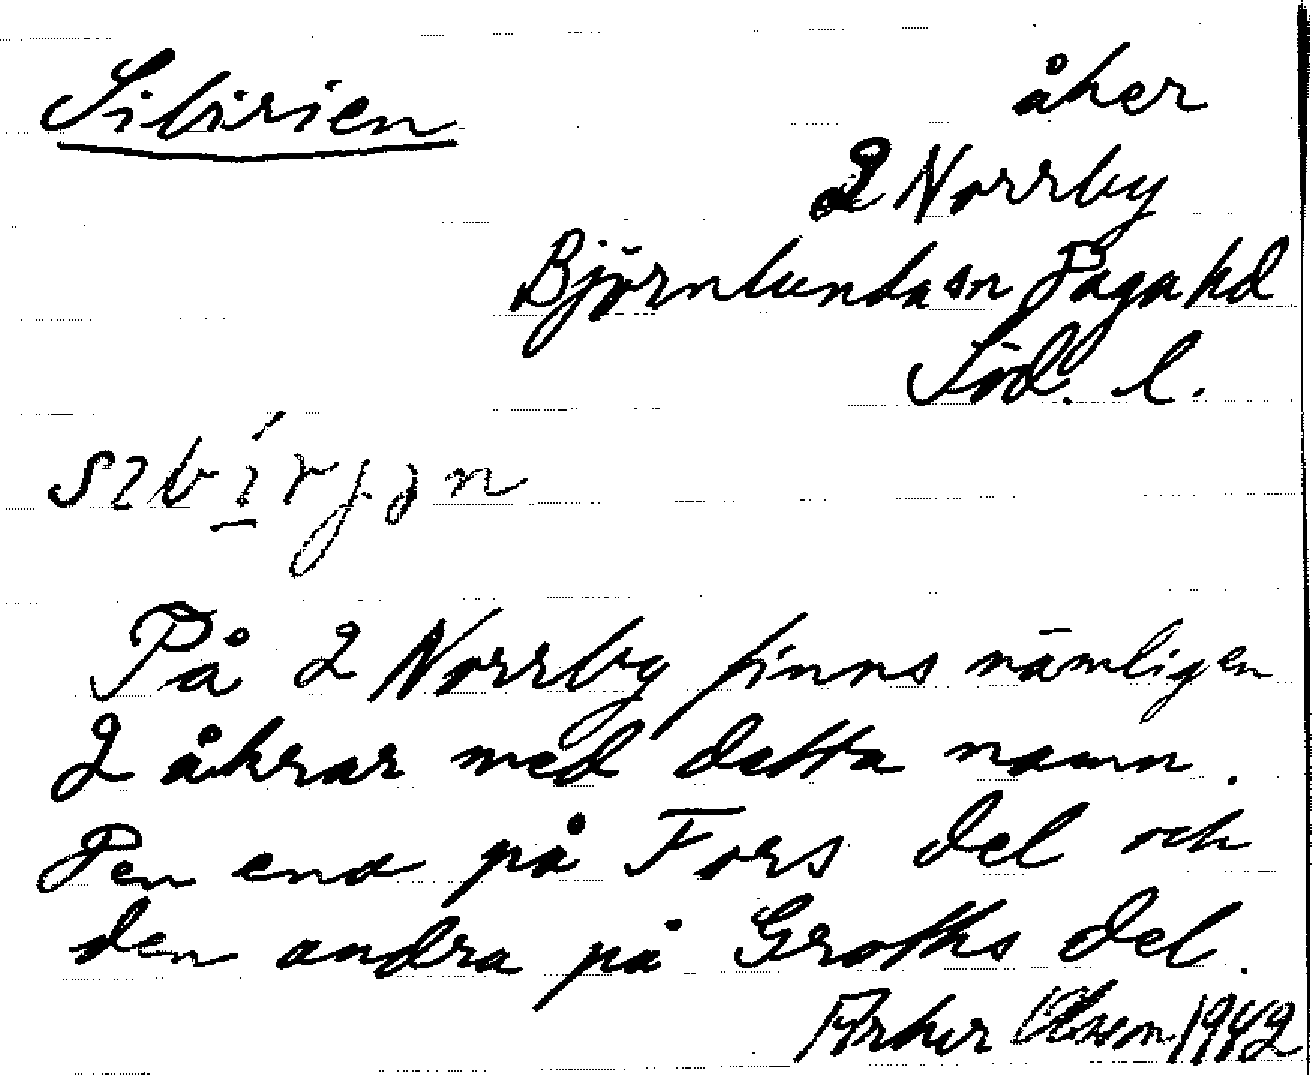 Sibirien
åker
2 Norrby
Björnlunda sn Daga hd
Söd. l.
sɩbɩ́rjən
På 2 Norrby finns nämligen
2 åkrar med detta namn.
Den ena på Fors del och
den andra på Groths del.
Olsson 1942